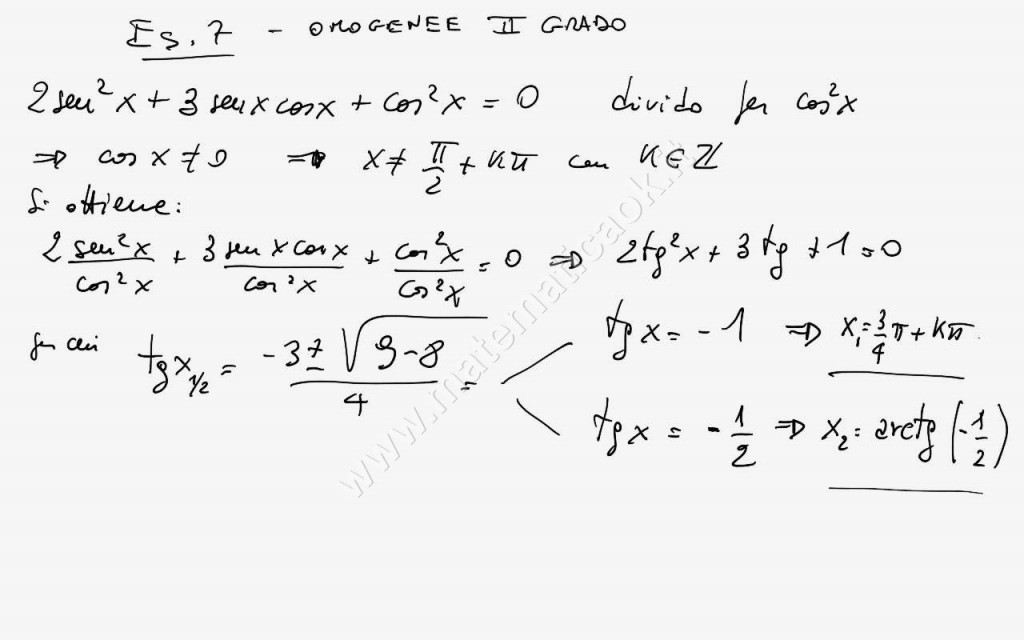 Es. 7 - OMOGENEE II GRADO
2 sen²x + 3 senx cosx + cos²x = 0 divido per cos²x
⇒ cos x ≠ 0 ⇒ x ≠ π/2 + kπ con K ∈ ℤ
Si ottiene:
2 sen²x/cos²x + 3 sen x cosx/cos²x + cos²x/cos²x = 0 ⇒ 2tg²x + 3 tg + 1 = 0
per cui tg x1/2 = (-3 ± √(9-8))/4 =
tg x = -1 ⇒ x₁ = 3/4 π + kπ
tg x = -1/2 ⇒ x₂ = arctg (-1/2)
www.matematicaok.it